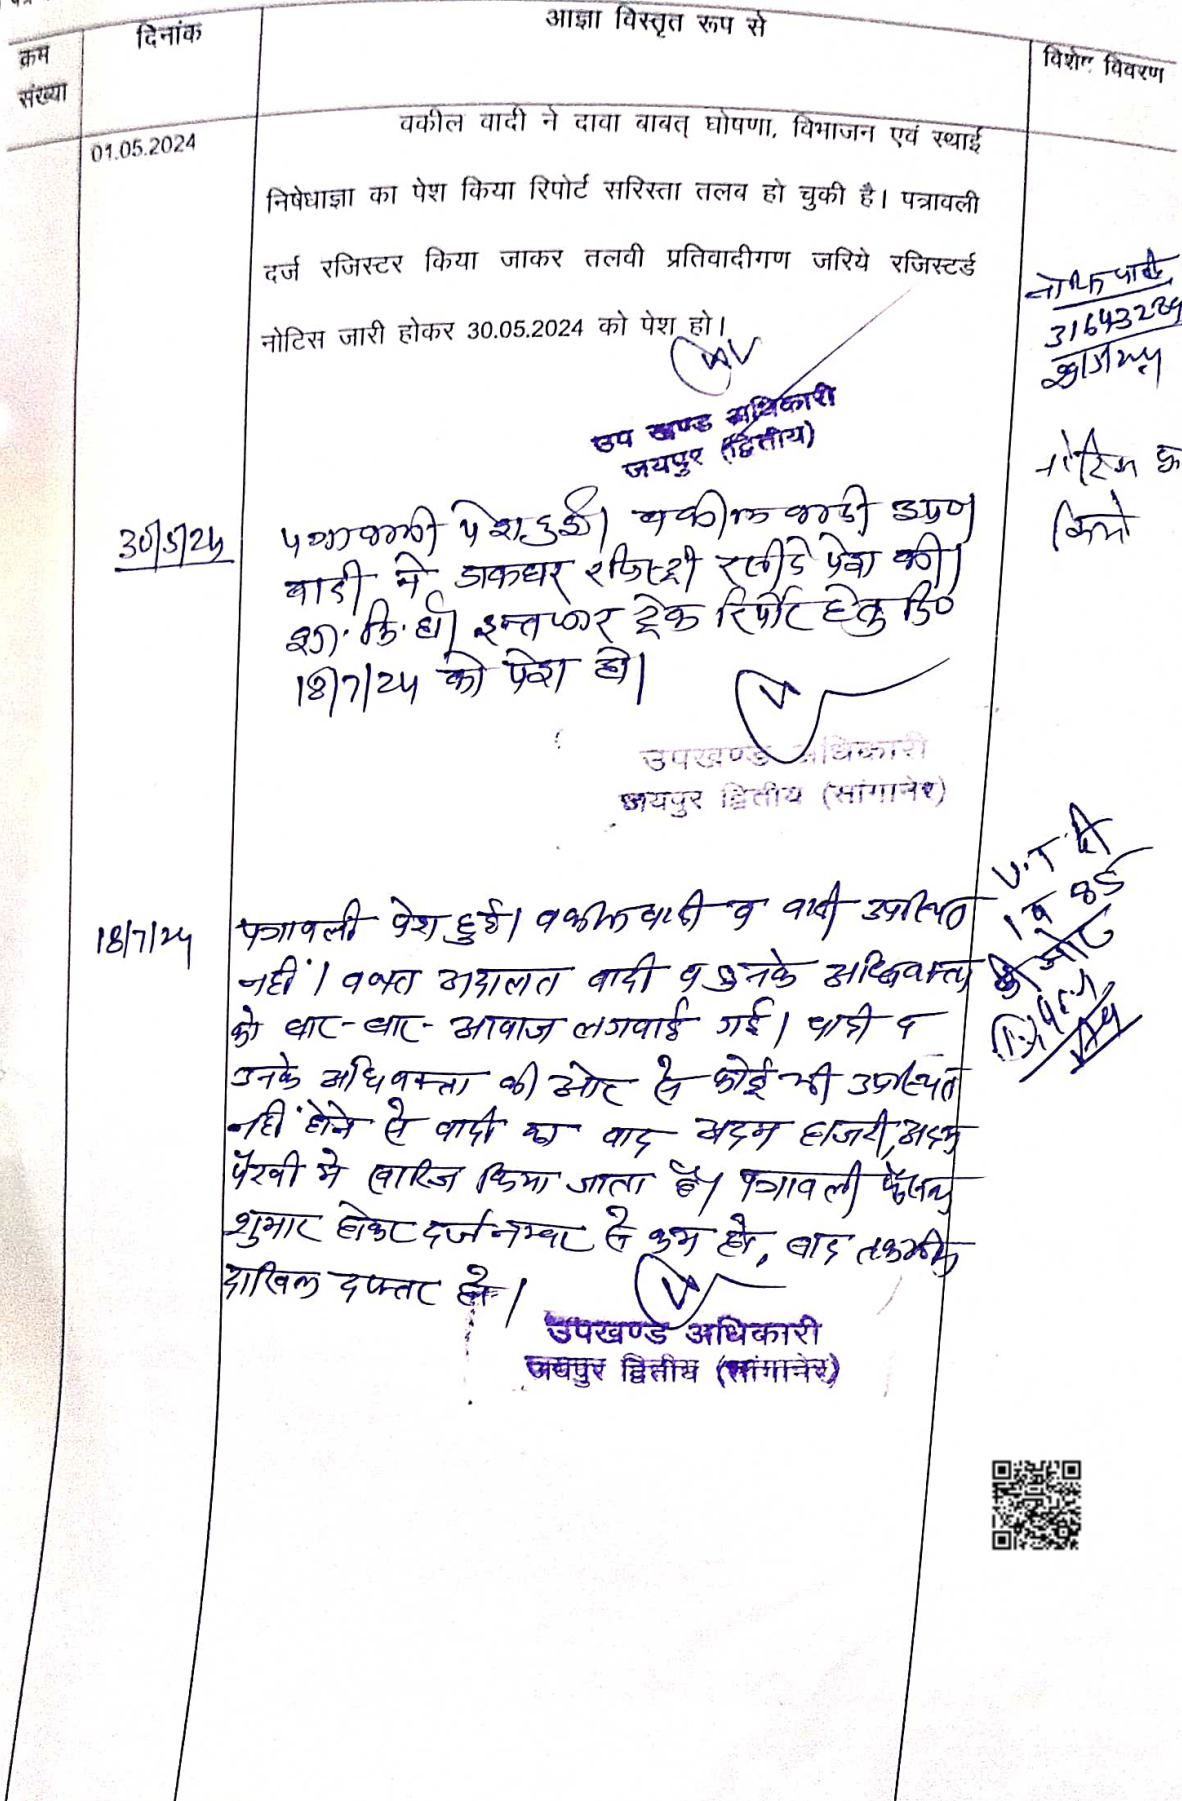 क्रम संख्या
दिनांक
आज्ञा विस्तृत रूप से
विशेष विवरण
01.05.2024
वकील वादी ने दावा बाबत् घोषणा, विभाजन एवं स्थाई
निषेधाज्ञा का पेश किया रिपोर्ट सरिस्ता तलब हो चुकी है। पत्रावली
दर्ज रजिस्टर किया जाकर तलवी प्रतिवादीगण जरिये रजिस्टर्ड
नोटिस जारी होकर 30.05.2024 को पेश हो।
उप खण्ड अधिकारी
जयपुर (द्वितीय)
30/5/24
पत्रावली पेश हुई। वकील वादी उप०
वादी ने डाकघर रजिस्ट्री रसीदे पेश की।
शा. मि. हो। इन्तजार ट्रेक रिपोर्ट हेतु दि०
18/7/24 को पेश हो।
उपखण्ड अधिकारी
जयपुर द्वितीय (सांगानेर)
18/7/24
पत्रावली पेश हुई। वकील वादी व वादी उपस्थित
नहीं। वक्त अदालत वादी व उनके अधिवक्ता
को बार-बार आवाज लगवाई गई। वादी व
उनके अधिवक्ता की ओर से कोई भी उपस्थित
नहीं होने से वादी का वाद अदम हाजरी, अदम
पैरवी में खारिज किया जाता है। पत्रावली फैसल
शुमार होकर दर्ज नम्बर से कम हो, बाद तकमील
दाखिल दफ्तर हो।
उपखण्ड अधिकारी
जयपुर द्वितीय (सांगानेर)